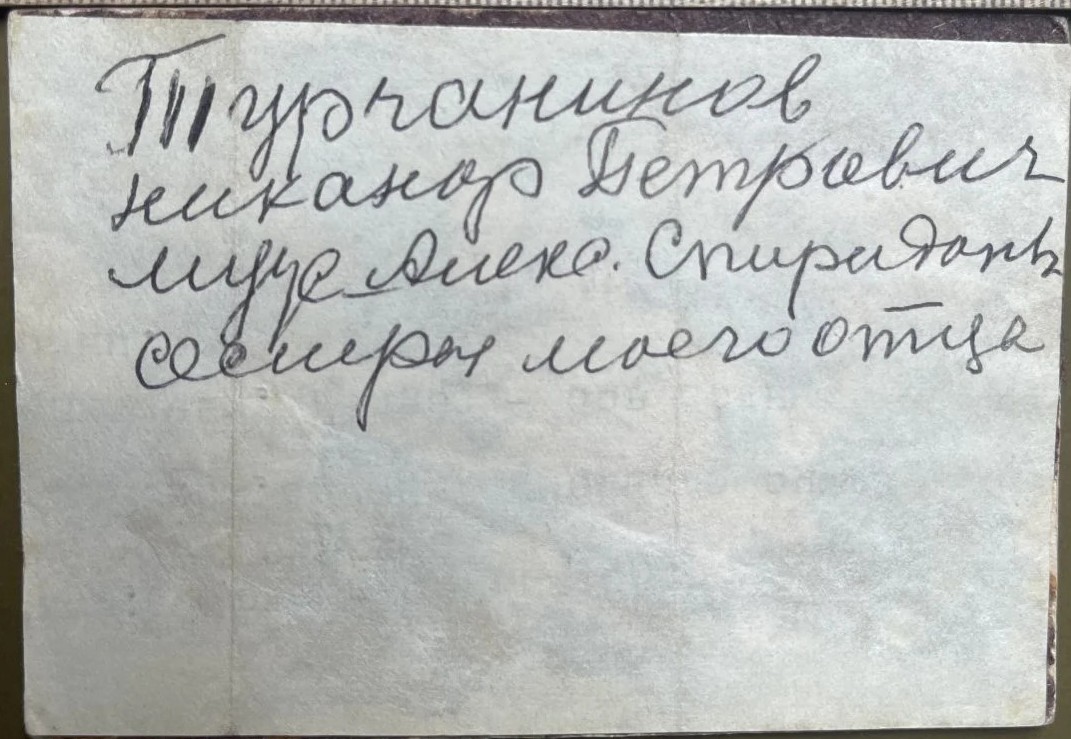 Турчанинов
Никанор Петрович
муж Алекс. Спиридон.
сестры моего отца